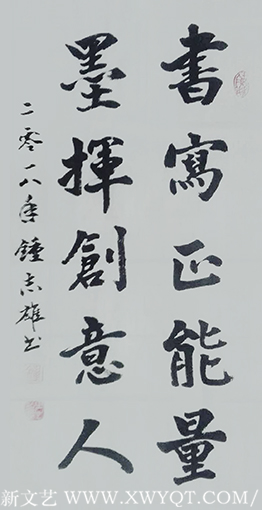 書寫正能量
墨揮創意人
二零一八年鍾志雄书
新文艺 WWW.XWYQT.COM/